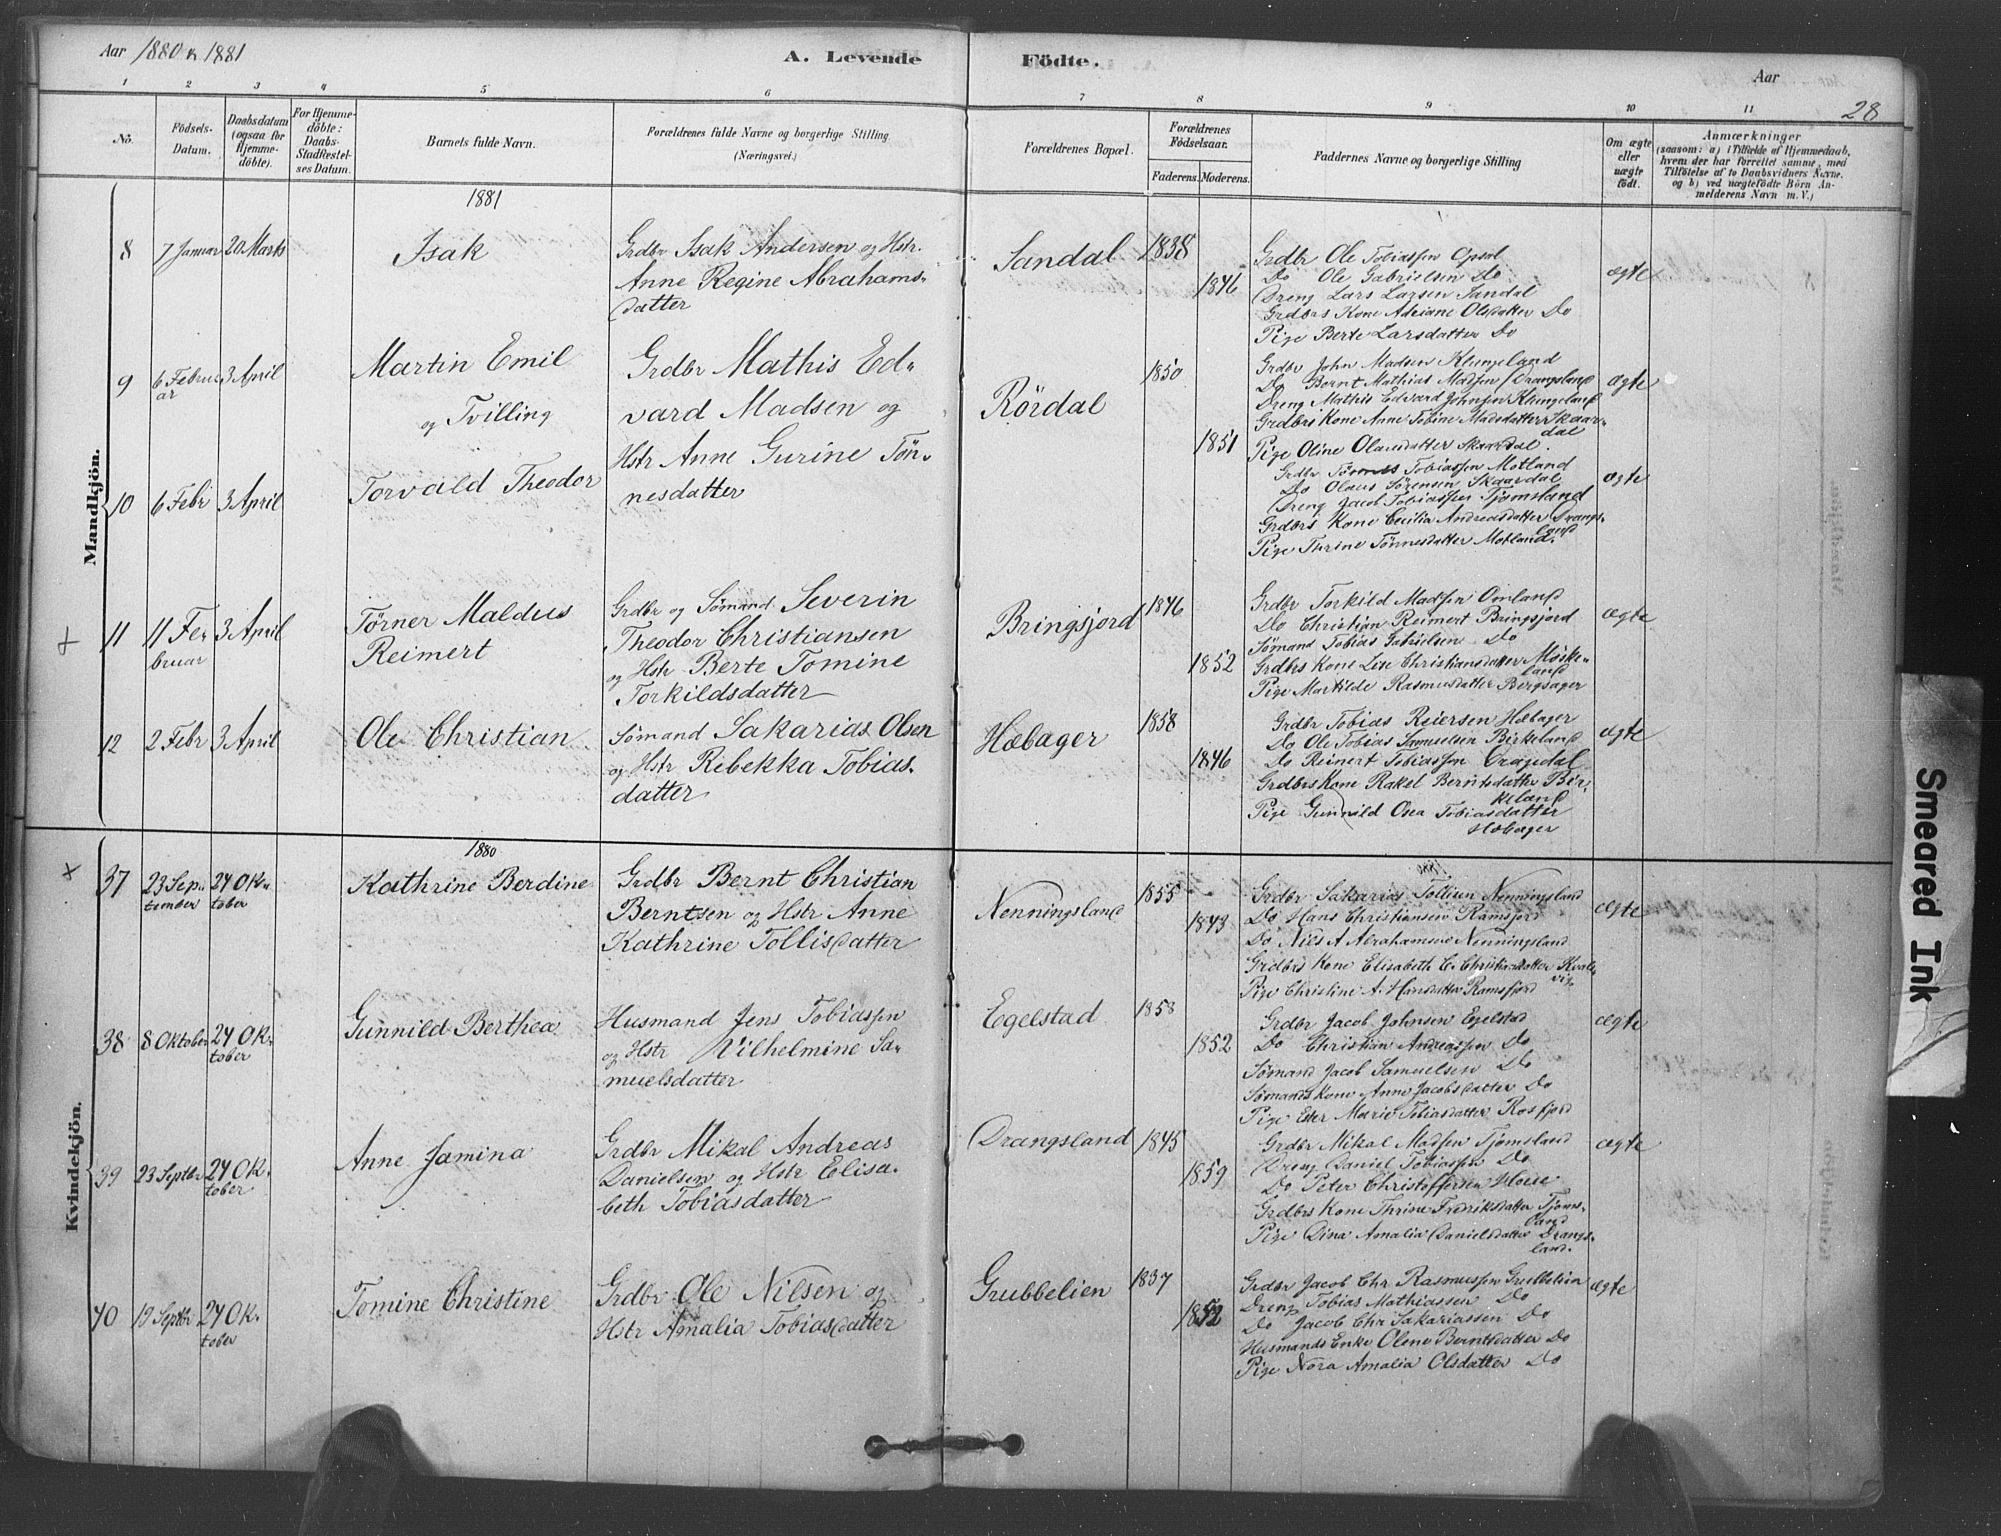 Aar 1880 & 1881
A. Levende Födte.
Aar
28
1 2 3 4 5 6 7 8 9 10 11
No.
Födsels-Datum.
Daabsdatum (ogsaa for Hjemme-döbte).
For Hjemme-döbte: Daabs-Stadfæstel-ses Datum.
Barnets fulde Navn.
Forældrenes fulde Navne og borgerlige Stilling.
(Næringsvei.)
Forældrenes Bopæl.
Forældrenes Födselsaar.
Faderens. Moderens.
Faddernes Navne og borgerlige Stilling
Om ægte eller uægte födt.
Anmærkninger
(saasom: a) i Tilfælde af Hjemmedaab, hvem der har forrettet samme, med Tilföielse af to Daabsvidners Navne. og b) ved uægtefödte Börn An-melderens Navn m. V.)
Mandkjön.
1881
8 7 Januar 20 Marts
Isak
Grdbr Isak Andersen og Hstr.
Anne Regine Abrahams-
datter
Sandal 1838
1846
Grdbr Ole Tobiassen Opsal
Do Ole Gabrielsen Do
Dreng Lars Larsen Sandal
Grdbrs Kone Adriane Olsdatter Do
Pige Berte Larsdatter Do
ægte
9 6 Februar 3 April
Martin Emil
og Tvilling
Grdbr Mathis Ed-
vard Madsen og
Hstr Anne Gurine Tön-
nesdatter
Rördal
1850
1851
Grdbr John Madsen Klungeland
Do Bernt Mathias Madsen Drangsland
Dreng Mathis Edvard Johnsen Klungeland
Grdbrs Kone Anne Tobine Madsdatter Skaar-
dal
Pige Oline Olausdatter Skaardal
ægte
10 6 Febr 3 April
Torvald Theodor
Grdbr Tønnes Tobiassen Motland
Do Olaus Sørensen Skaardal
Dreng Jacob Tobiassen Tjomsland
Grdbrs Kone Cecilia Andreasdatter Drangs-
land
Pige Thrine Tönnesdatter Motland.
ægte
+ 11 11 Februar 3 April
Törner Maldus
Reimert
Grdbr og Sømand Severin
Theodor Christiansen
og Hstr Berte Tomine
Torkildsdatter
Bringsjord
1846
1852
Grdbr Torkild Madsen Omland
Do Christian Reimert Bringsjord
Sømand Tobias Gabrielsen Do
Grdbrs Kone Lise Christiansdatter Möske-
land
Pige Martilde Rasmusdatter Bergsager
ægte
12 2 Febr 3 April
Ole Christian
Sømand Sakarias Olsen
og Hstr Rebekka Tobias-
datter
Hæbager
1858
1846
Grdbr Tobias Reiersen Hæbager
Do Ole Tobias Samuelsen Birkeland
Do Reinert Tobiassen Oradal
Grdbrs Kone Rakel Berntsdatter Bir-
keland
Pige Gunnild Osea Tobiasdatter
Hæbager
ægte
Kvindekjön.
1880
1880
x 37 23 September 24 Oktober
Kathrine Berdine
Grdbr Bernt Christian
Berntsen og Hstr Anne
Kathrine Tollisdatter
Nenningsland
1855
1843
Grdbr Sakarias Tollisen Nenningsland
Do Hans Christiansen Ramsfjord
Do Nils A Abrahamsen Nenningsland
Grdbrs Kone Elisabeth C. Christiansdatter Kvale-
vig
Pige Christine A. Hansdatter Ramsfjord
ægte
38 8 Oktober 24 Oktober
Gunnild Berthea
Husmand Jens Tobiassen
og Hstr Vilhelmine Sa-
muelsdatter
Egelstad
1853
1852
Grdbr Jacob Johnsen Egelstad
Do Christian Andreassen Do
Sømand Jacob Samuelsen Do
Sømands Kone Anne Jacobsdatter Do
Pige Eder Marie Tobiasdatter Rosfjord
ægte
39 23 Septbr 24 Oktober
Anne Jamina
Grdbr Mikal Andreas
Danielsen og Hstr Elisa-
beth Tobiasdatter
Drangsland
1845
1859
Grdbr Mikal Madsen Tjomsland
Dreng Daniel Tobiassen Do
Do Peter Christoffersen
Grdbrs Kone Thrine Fredriksdatter Tjoms-
land
Pige Dina Amalia Danielsdatter Drangs-
land.
ægte
40 19 Septbr 24 Oktober
Tomine Christine
Grdbr Ole Nilsen og
Hstr Amalia Tobiasdatter
Grubbelien
1837
1852
Grdbr Jacob Chr Rasmussen Grubbelien
Dreng Tobias Mathiassen Do
Do Jacob Chr Sakariassen Do
Husmands Enke Olene Berntsdatter Do
Pige Nora Amalia Olsdatter Do
ægte
Smeared Ink